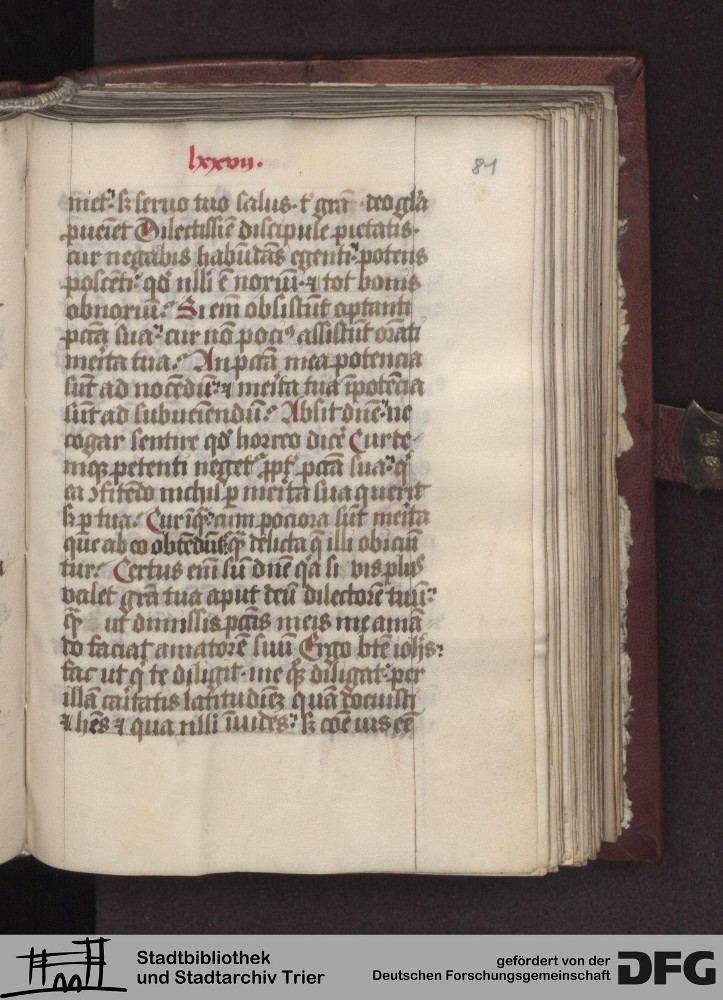 lxxvij.
81
met᷒ sꝫ seruo tuo salus · t' grā · deo glā
ꝓueīet Dilectissīe discipule pietatis·
cur negabis habūdās egenti· potens
poscēti· qđ nlli ē noxiū· ⁊ tot bonis
obnoxiū· Si em̄ obsistūt optanti
pctā sua· cur nō poci᷒ assistūt orāti
merita tua· An pctā mea potencia
sūt ad nocēdū· ⁊ merita tua īpotēcia
sūt ad subueīendū· Absit dn̄e· ne
cogar sentire qđ horreo dicē Cur te-
mꝫ petenti neget᷒ ꝓpt' pctā sua· q
ea ꝯfitēdo nichil ꝑ merita sua querit
sꝫ ꝑ tua· Cur īqꝫ cum pociora sūt merita
que ab eo obtēdūt᷒ qꝫ delicta q̄ illi obiciū
tur· Certus em̄ sū dn̄e qa si vis plus
valet grā tua aput deū dilectorē tuū·
ut dimissis pctīs meis me amā
do faciat amatorē suū Ergo btē ioh̄s·
fac ut q te diligit· me qꝫ diligat· per
illā caritatis latitudinē quā docuisti
⁊ hēs ⁊ qua nlli īuides· sꝫ cōē uis eē
Stadtbibliothek
und Stadtarchiv Trier
gefördert von der
Deutschen Forschungsgemeinschaft
DFG